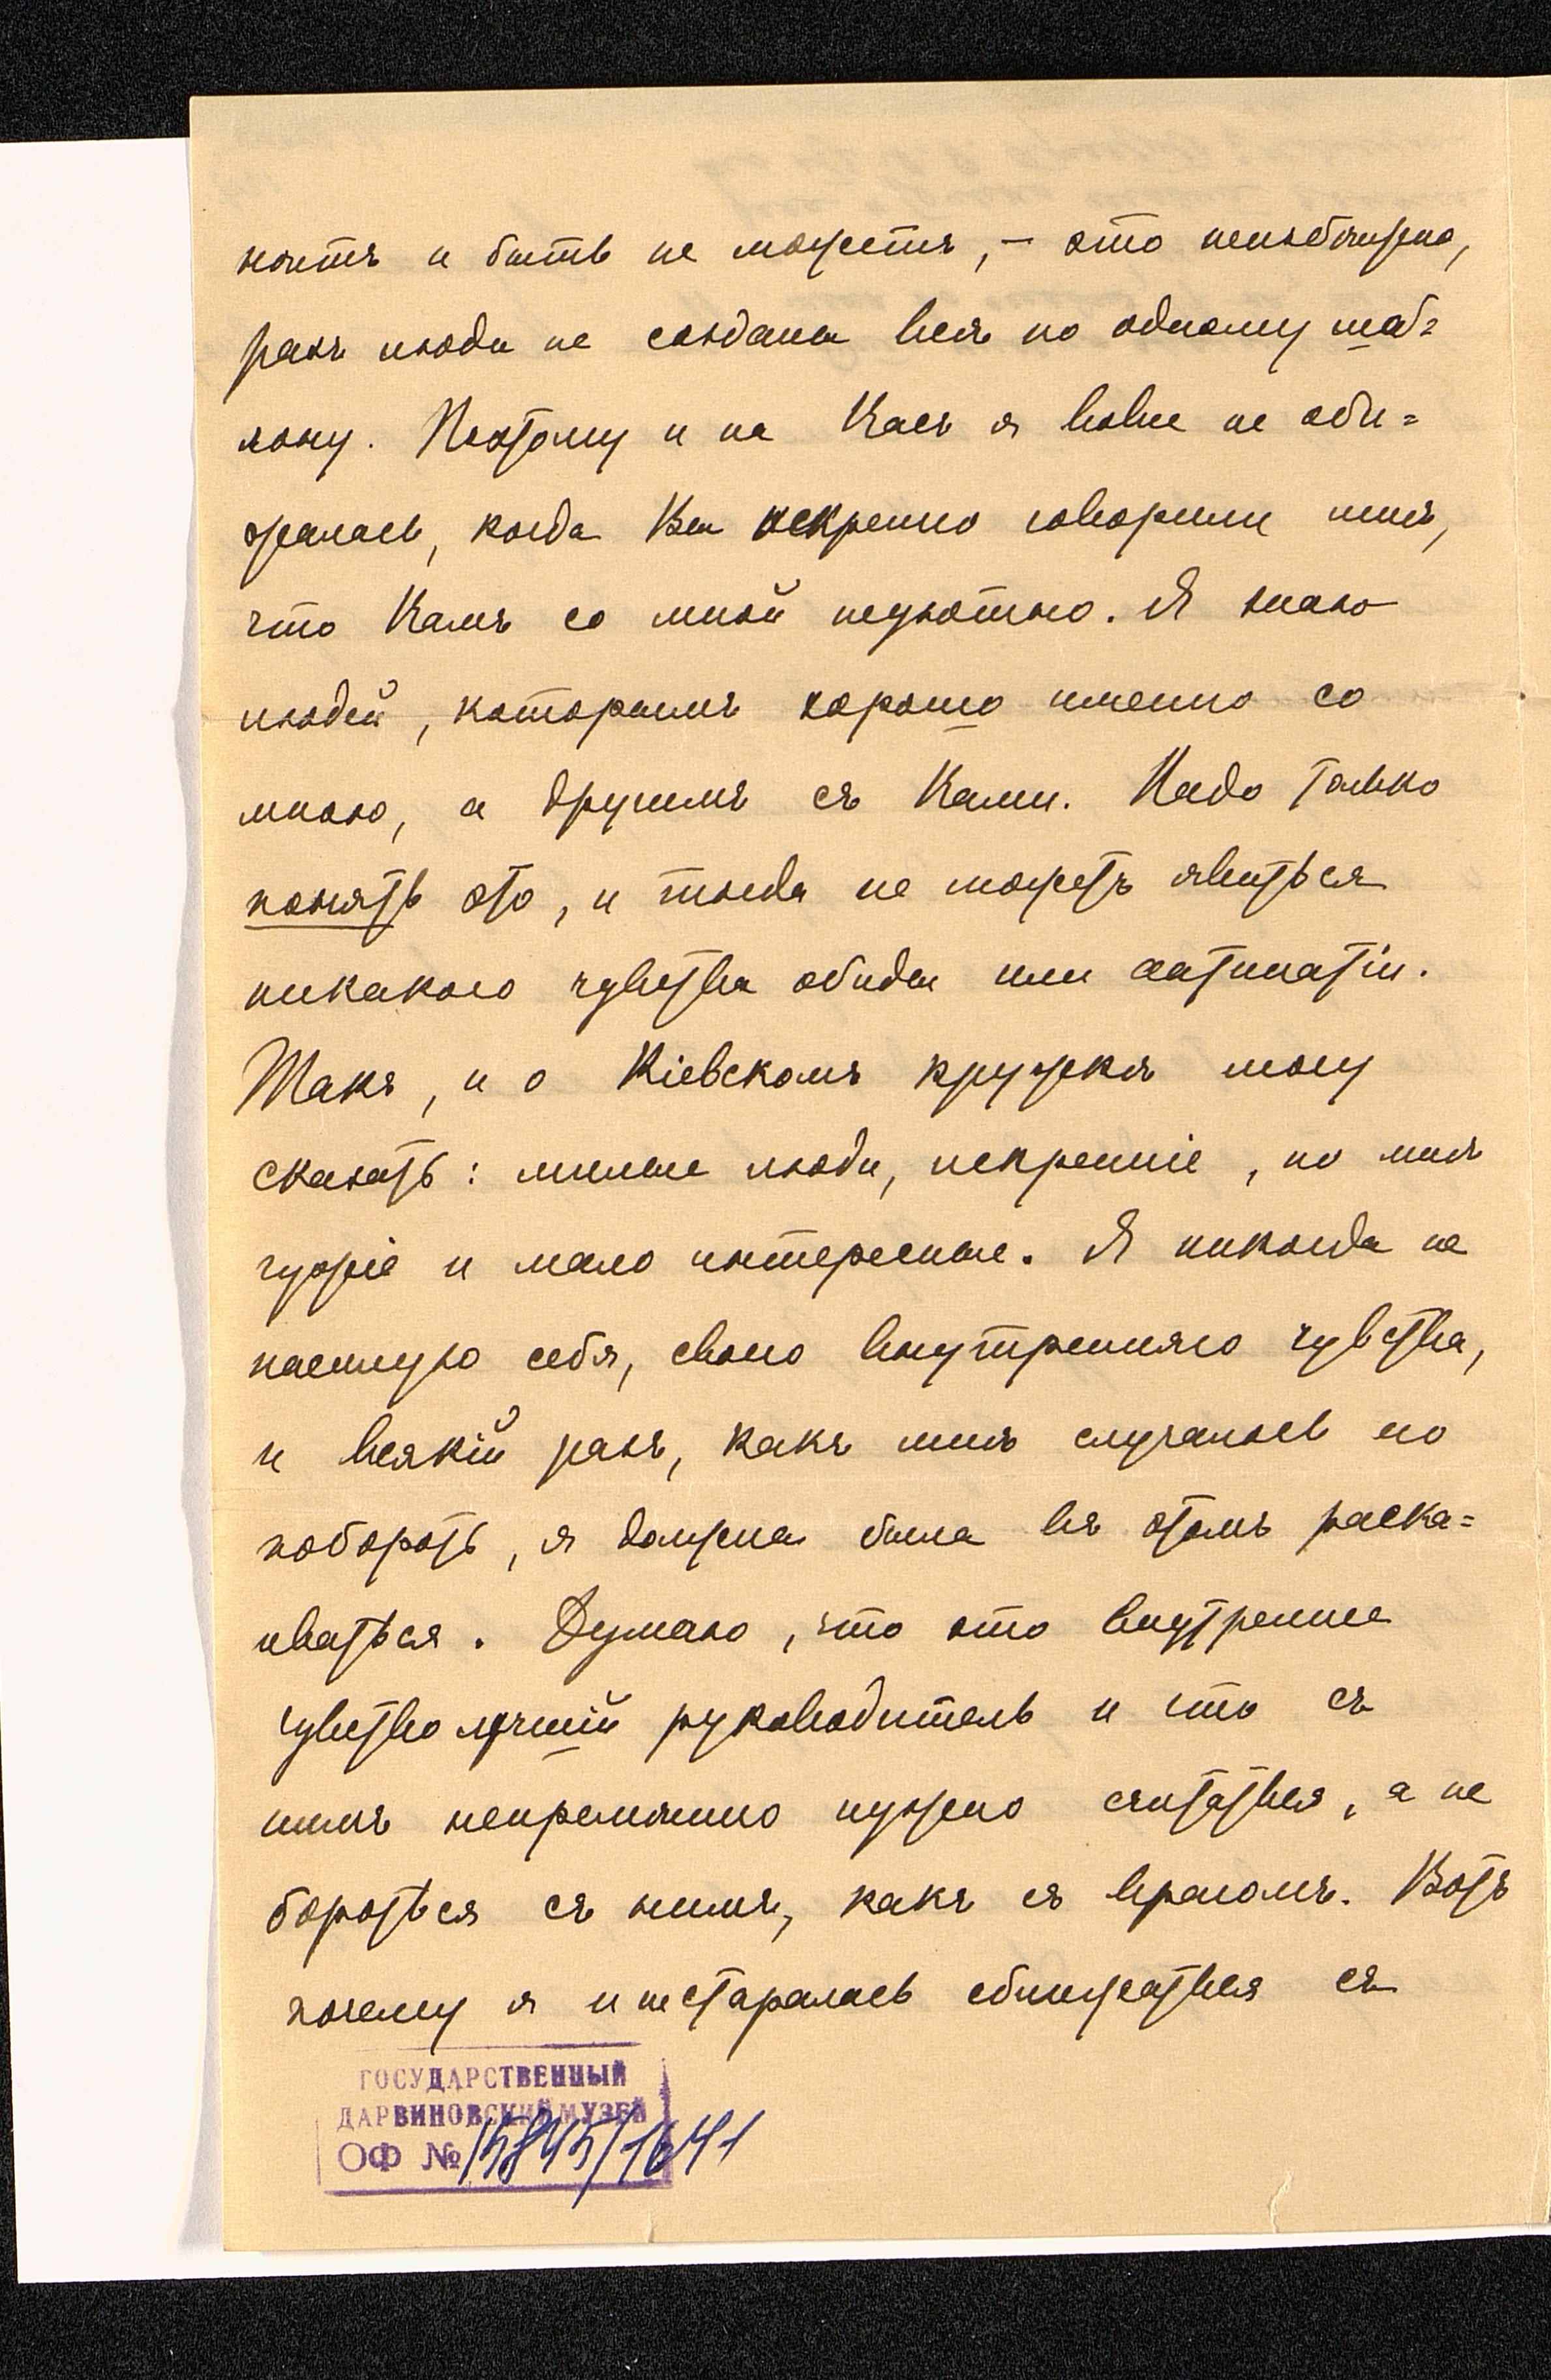 ноитъ и быть не можетъ, – это неизбѣжно,
разъ люди не созданы всѣ по одному шаб=
лону. Поэтому и на Васъ я вовсе не оби=
жалась, когда Вы искренно говорили мнѣ,
что Вамъ со мной неуютно. Я знаю
людей, которымъ хорошо именно со
мною, а другимъ съ Вами. Надо только
понять это, и тогда не можетъ явиться
никакого чувства обиды или антипатіи.
Такъ, и о Кіевскомъ кружкѣ могу
сказать: милые люди, искренніе, но мнѣ
чужіе и мало интересные. Я никогда не
насилую себя, своего внутренняго чувства,
и всякій разъ, какъ мнѣ случалось его
побороть, я должна была въ этомъ раска=
иваться. Думаю, что это внутреннее
чувство лучшій руководитель и что съ
нимъ непремѣнно нужно считаться, а не
бороться съ нимъ, какъ съ врагомъ. Вотъ
почему я и не старалась сближаться съ
ГОСУДАРСТВЕННЫЙ
ДАРВИНОВСКИЙ МУЗЕЙ
ОФ № 15845/1641